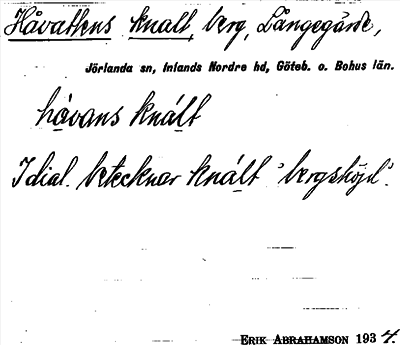 Håvattens knalt, berg, Långegärde,
Jörlanda sn, Inlands Nordre hd, Göteb. o. Bohus län.
håvans knált
I dial. betecknar knált 'bergshöjd'.
ERIK ABRAHAMSON 1934.